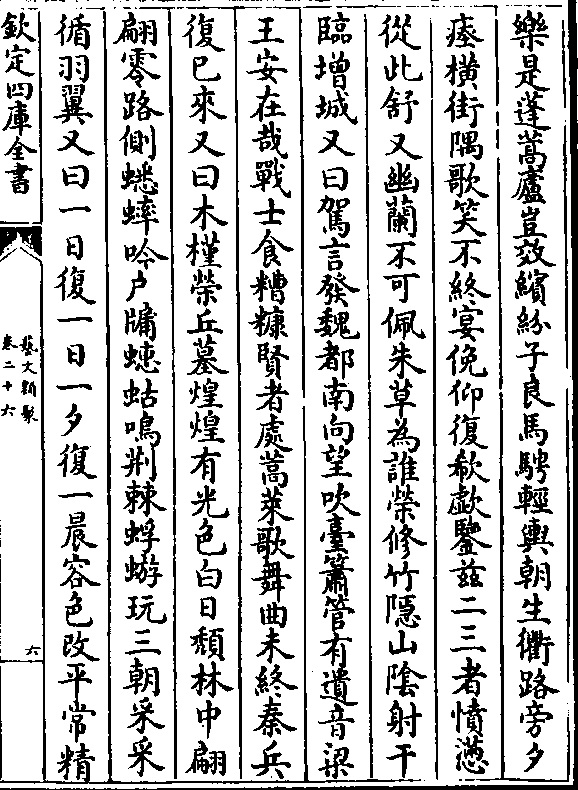 樂是蓬蒿廬豈效繽紛子良馬騁輕輿朝生衢路旁夕
瘞橫街隅歌笑不終宴俛仰復欷歔鑒茲二三者憤懣
從此舒又幽蘭不可佩朱草為誰榮修竹隱山陰射干
臨增城又曰駕言發魏都南向望吹臺簫管有遺音梁
王安在哉戰士食糟糠賢者處蒿萊歌舞曲未終秦兵
復已來又曰木槿榮丘墓煌煌有光色白日頹林中翩
翩零路側蟋蟀吟户牖蟪蛄鳴荆棘蜉蝣玩三朝采采
循羽翼又曰一日復一日一夕復一晨容色改平常精
欽定四庫全書
藝文類聚
卷二十六
六